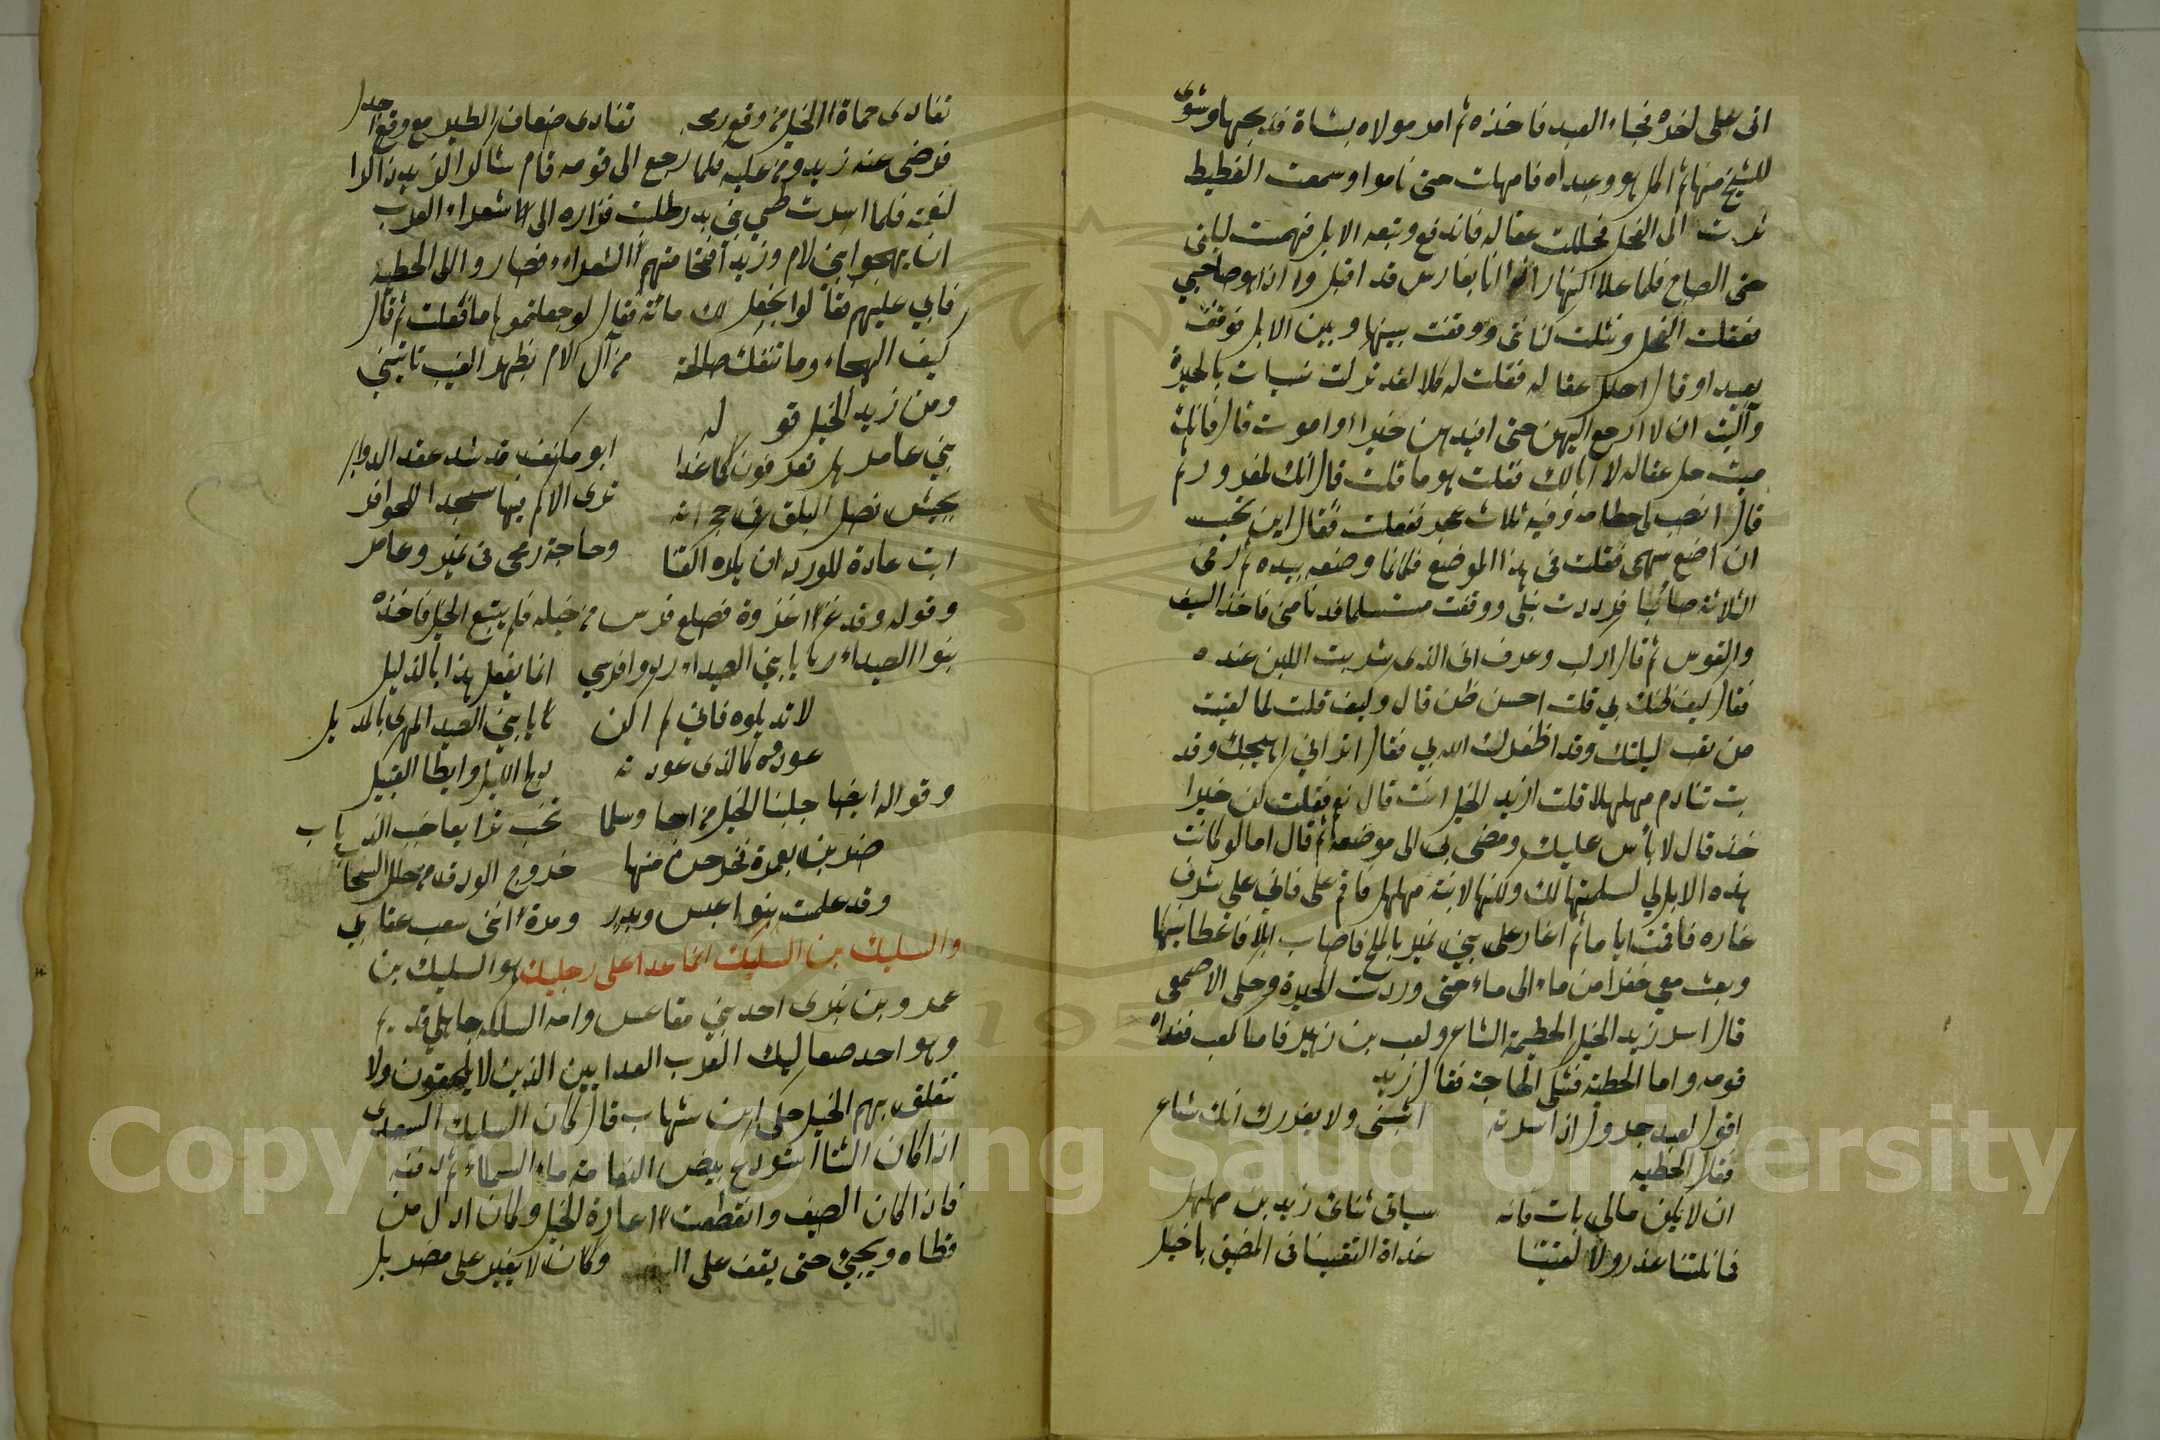 اتى على اخره فجاء العبد فاخذه ثم امر مولاه بشاة فذبحها وشوى
للشيخ منها ثم اكل هو وعبداه فامهلت حتى ناموا وسمعت الغطيط
ثرت الى الفحل فحللت عقاله فاندفع وتبعه الابل فهمت لباني
حتى الصباح فلما علا النهار اذا انا بفارس قد اقبل واذا هو صاحبي
فعقلت الفحل ونثلت كنانتي ووقفت بينها وبين الابل فوقف
بعيدا وقال احلل عقاله فقلت له كلا لقد تركت نسيات بالحيرة
وآليت ان لا ارجع اليهن حتى افيدهن خيرا او اموت قال فانك
ميت حل عقاله لا ابا لك فقلت هو ما قلت قال انك لمغرور ثم
قال انصب لي خطامه وفيه ثلاث عجر ففعلت فقال اين تحب
ان اضع سهمي فقلت في هذا الموضع فكانما وضعه بيده ثم رمى
الثلاثة صائبا فرددت نبلي ووقفت مستسلما فدنا مني فاخذ السيف
والقوس ثم قال اركب وعرف اني الذي شربت اللبن عنده
فقال كيف ظنك بي قلت احسن ظن قال وكيف قلت لما لقيت
من تعب ليلتك وقد اظفرك الله بي فقال اتراني اهيجك وقد
بت تنادم مهلهلا قلت ازيد الخيل انت قال نعم فقلت كن خيرا
خذ قال لا بأس عليك ومضى بي الى موضعه ثم قال اما لو كانت
هذه الابل لي لسلمتها لك ولكنها لابنة مهلهل فاقم علي فاني على شرف
غارة فاقمت اياما ثم اغار على بني نمير بالملح فاصاب ابلا فاعطانيها
وبعث معي خفرا من ماء الى ماء حتى وردت الحيرة وحكى الاصمعي
قال اسر زيد الخيل الحطيئة الشاعر وكعب بن زهير فاما كعب ففداه
قومه واما الحطية فشكى الحاجة فقال زيد
اقول لعبد جرول اذ اسرته اثبني ولا يغررك انك شاعر
فقال الحطيه
ان لا يكن مالي بات فانه سياتي ثنائي زيد بن مهلهل
فما نلتنا غدرا ولا لقيتنا غداة التقينا في المضيق باخيل
تفادى حماة الخيل من وقع رمحه تفادى ضعاف الطير مع وقع اجدل
فرضى عنه زيد ومن عليه فلما رجع الى قومه قام شاكرا لزيد ذاكرا
لنعمته فلما اسرت طي بني بدر طلبت فزاره الى شعراء العرب
ان يهجوا بني لام وزيدا فتحامتهم الشعراء فصاروا الى الحطيه
فابي عليهم فقالوا نجعل لك مائة فقال لو جعلتموها ما فعلت ثم قال
كيف الهجاء وما تنفك صالحة من آل لام بظهر الغيب تاتيني
ومن زيد الخيل قوله
بني عامر هل تعرفون كما غدا ابو مكنف قد شد عقد الدوابر
بجيش تضل البلق في حجراته ترى الاكم فيها سجدا للحوافر
ابت عادة للورد ان يكره القنا وحاجة رمحي في نمير وعامر
وقوله وقد غزا غزوة فضلع فرس من خيله فلم يتبع الخيل فاخذه
بنوا الصيداء يا بني الصيداء ردوا فرسي انما يفعل هذا بالذليل
لا تذيلوه فاني لم اكن يا بني الصيد المهري بالمذيل
عودوه كالذي عودته دلج الليل وايطا القتيل
وقوله ايضا جلبنا الخيل من اجا وسلما تخب نزايعا خبب الذياب
ضربن بغمرة فخرجن منها خروج الودق من خلل السحاب
وقد علمت بنوا عبس وبدر ومرة انني صعب عقابي
والسليك بن السلكة انما عدا على رجليك هو السليك بن
عمرو بن يثرى احد بني مقاعس وامه السلكه جاهلي قديم
وهو احد صعاليك العرب العدايين الذين لا يلحقون ولا
تعلق بهم الخيل حكى ابن شهاب قال كان السليك السعدى
اذا كان الشتا استودع بيض النعامة ماء السماء ثم دفنه
فاذا كان الصيف وانقطعت اعارة الخيل وكان ادل من
قطاه ويجئ حتى يقف على وكان لا يغير على مضر بل
Copyright © King Saud University